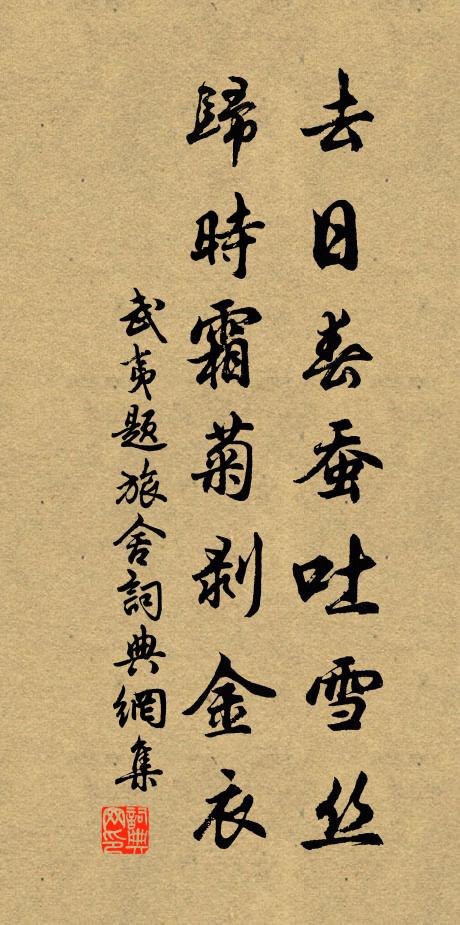 去日春蚕吐雪丝
歸時霜菊剥金衣
武夷題旅舍詞典網集
詞典網印